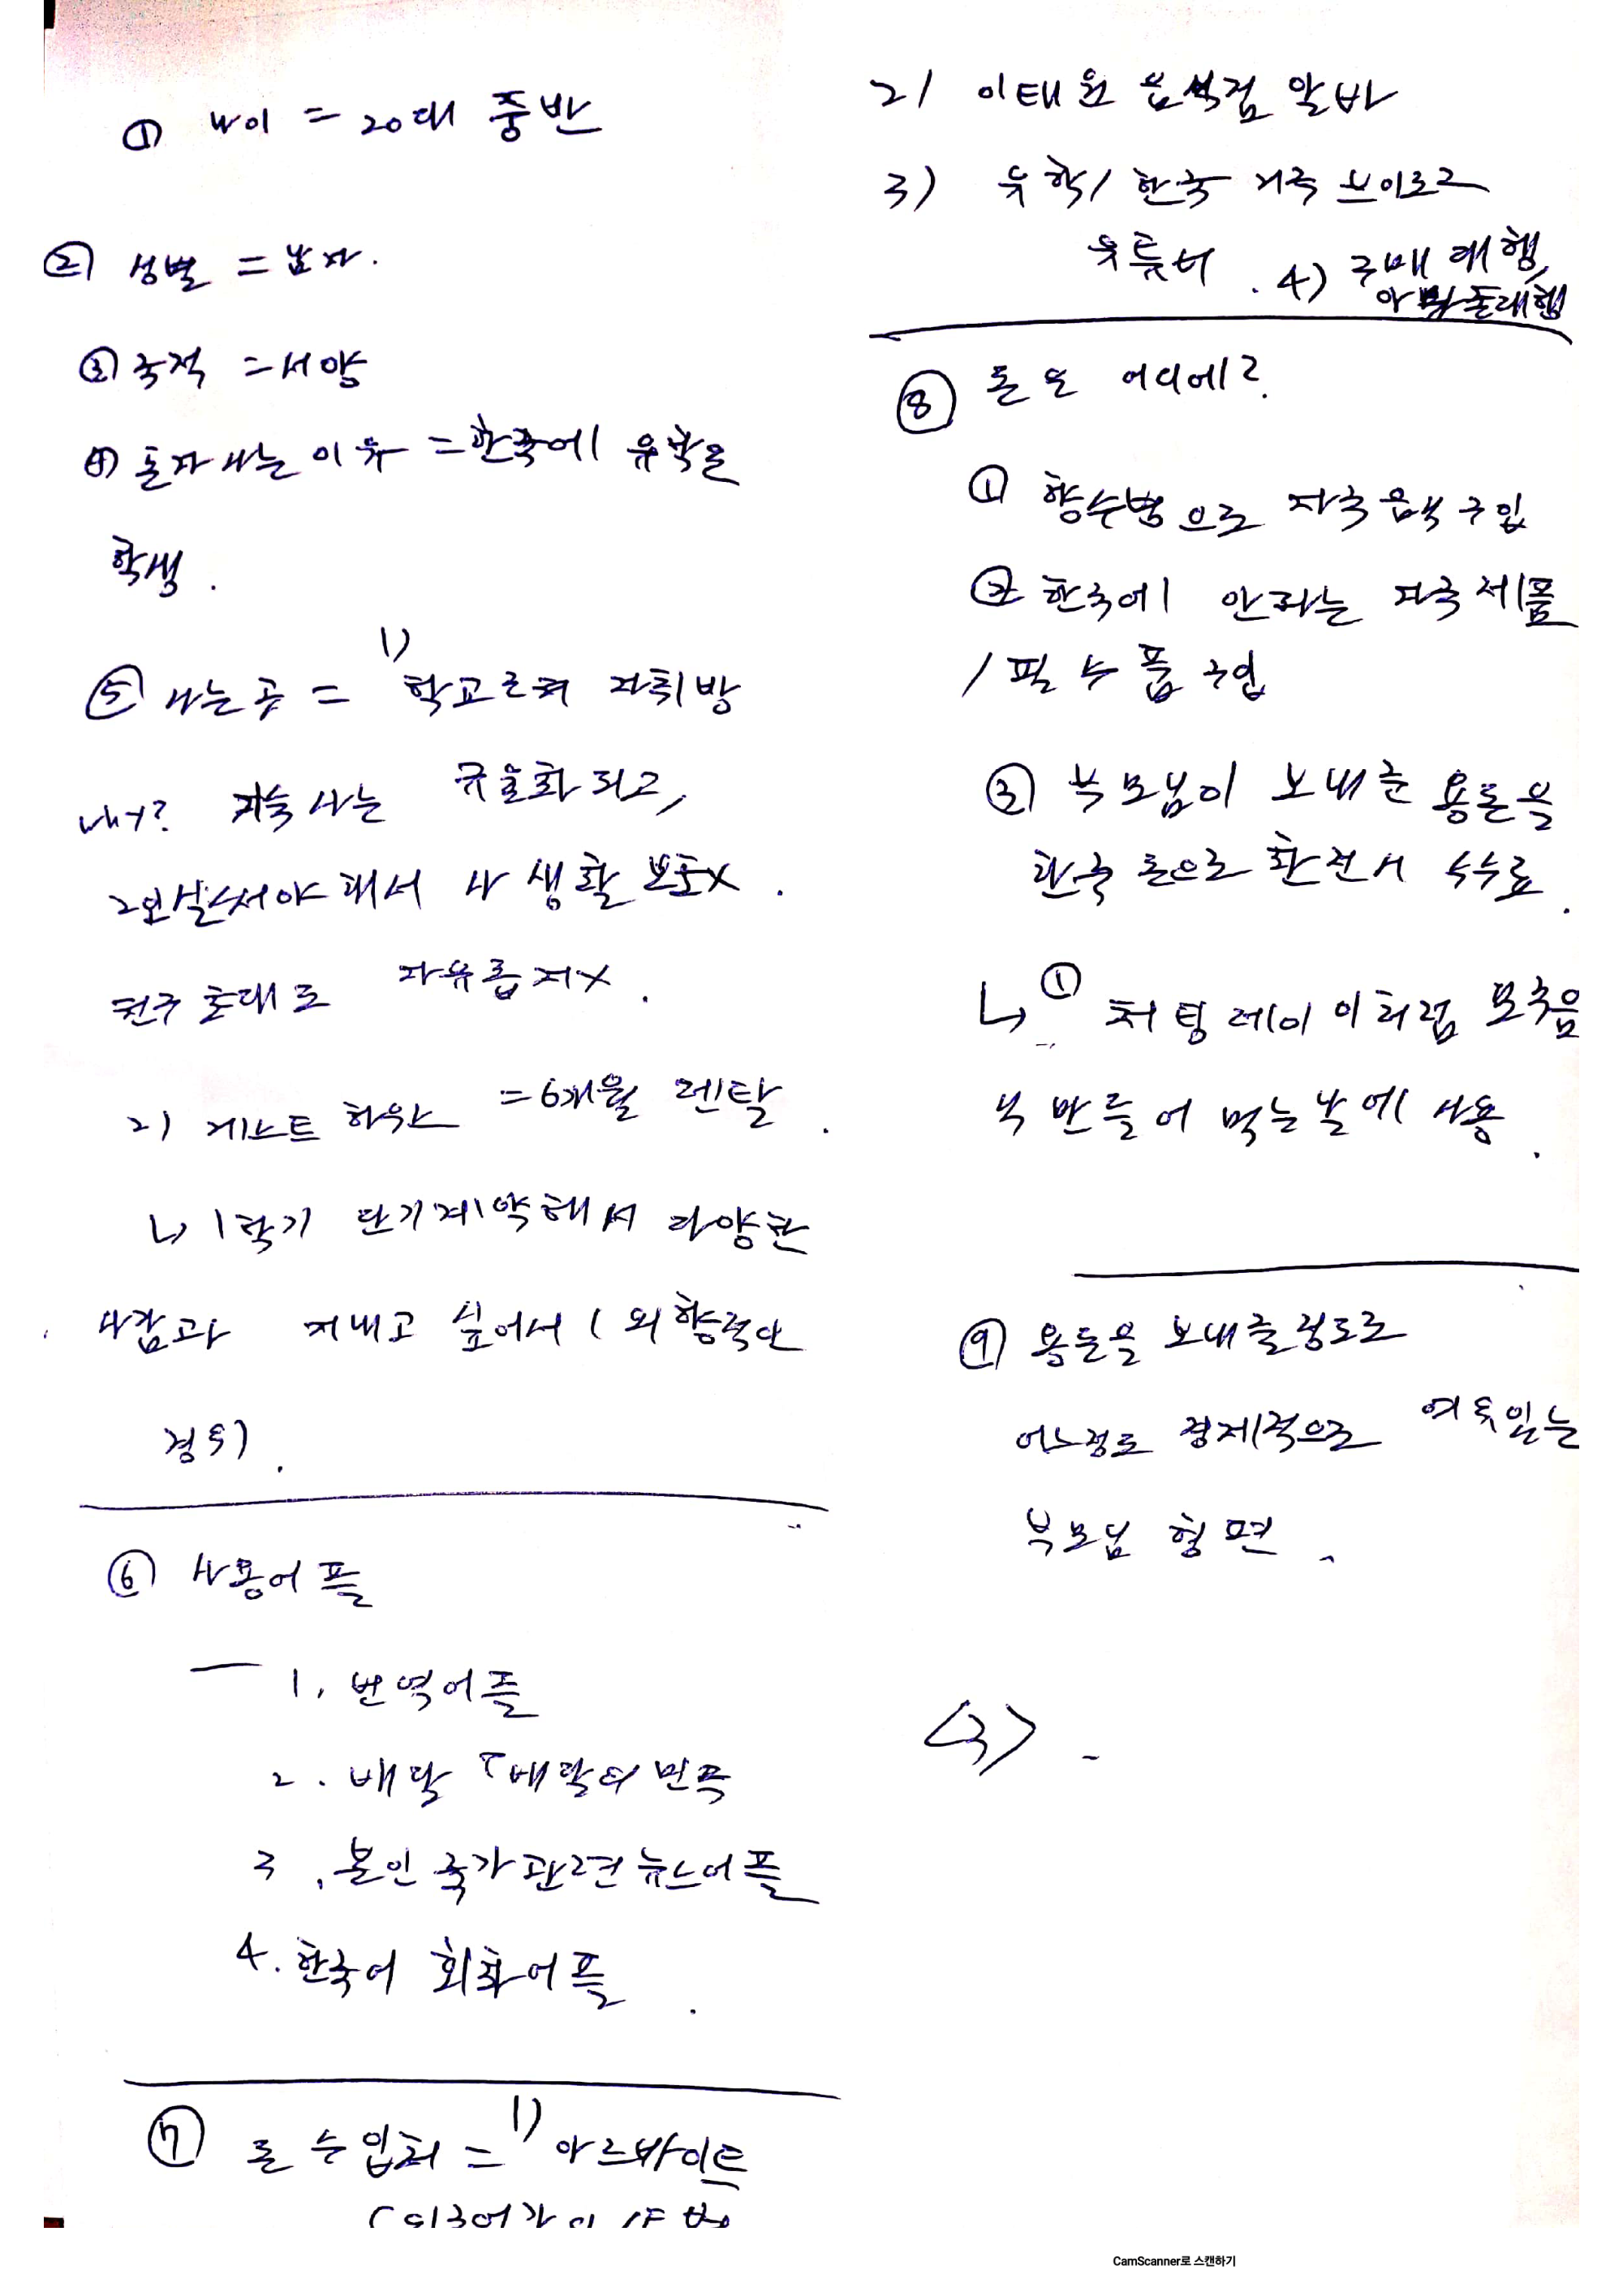 ① 나이 = 20대 중반
② 성별 = 남자.
③ 국적 = 서양
④ 혼자 사는 이유 = 한국에 유학온
학생.
⑤ 사는 곳 = 1) 학교근처 자취방
why? 기숙사는 규율화 되고,
2인실 써야 해서 사생활 보호X.
친구 초대로 자유롭지X.
2) 게스트 하우스 = 6개월 렌탈.
↳ 1학기 단기계약해서 다양한
사람과 지내고 싶어서 (외향적인
경우).
⑥ 사용어플
1. 번역어플
2. 배달 「배달의 민족
3. 본인 국가 관련 뉴스어플
4. 한국어 회화어플.
⑦ 돈 수입처 = 1) 아르바이트
2) 이태원 음식점 알바
3) 유학/한국 거주 브이로그
유튜버. 4) 구매 대행,
⑧ 돈은 어디에?
① 향수병으로 자국음식 구입
② 한국에 안파는 자국 제품
/ 필수품 구입
③ 부모님이 보내준 용돈을
한국 돈으로 환전시 수수료.
↳ ①
만들어 먹는 날에 사용.
⑨ 용돈을 보내줄정도로
어느정도 경제적으로 여유있는
부모님 형편.
<3>
CamScanner로 스캔하기